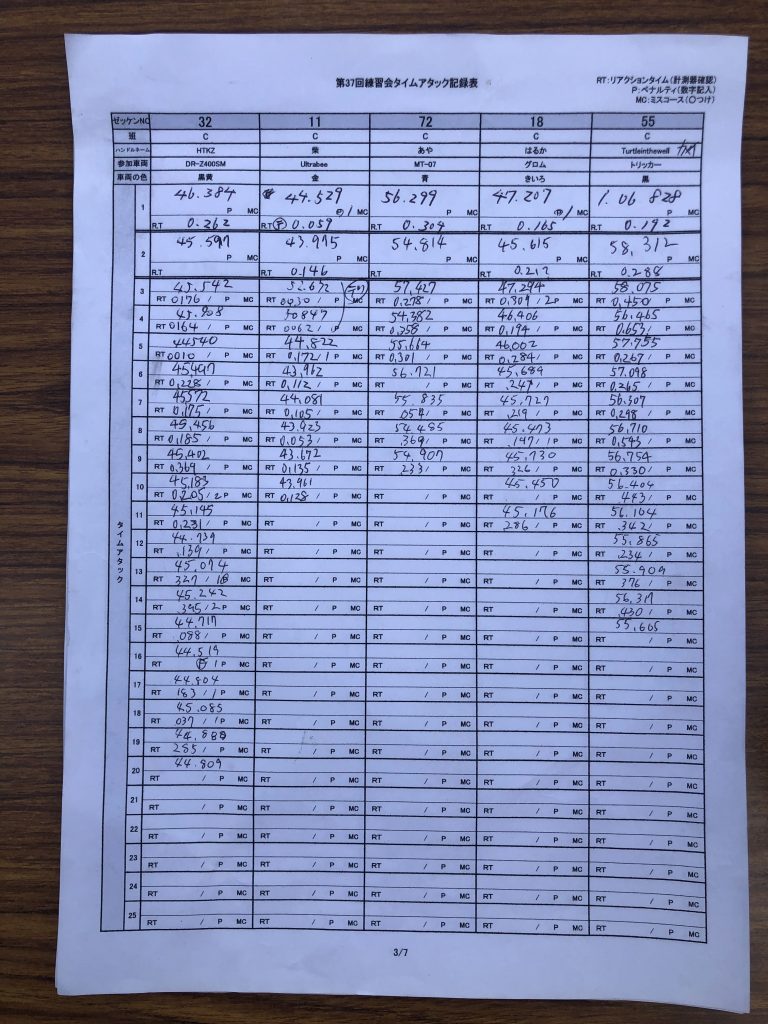 第37回練習会タイムアタック記録表
RT:リアクションタイム(計測器確認)
P:ペナルティ(数字記入)
MC:ミスコース(〇つけ)
ゼッケンNO 32 11 72 18 55
班 C C C C C
ハンドルネーム HTKZ 柴 あや はるか Turtleinthewell
参加車両 DR-Z400SM Ultrabee MT-07 グロム トリッカー
車両の色 黒黄 金 青 きいろ 黒
タイムアタック
1 46.384 44.529 56.299 47.207 1.06 828
P MC P 1 MC P MC P 1 MC P MC
R.T 0.262 R.T F 0.059 R.T 0.304 R.T 0.165 R.T 0.192
2 45.597 43.975 54.814 45.615 58.312
P MC P MC P MC P MC P MC
R.T R.T 0.146 R.T R.T 0.212 R.T 0.288
3 45.542 52.672 57.427 47.294 58.075
RT 0176 / P MC RT 0030 / P RT 0.278 / P MC RT 0.309 / 2P MC RT 0.450 / P MC
4 45.908 50847 54.382 46.406 56.465
RT 0164 / P MC RT 0062 / P MC RT 0.358 / P MC RT 0.194 / P MC RT 0.653 / P MC
5 44540 44.822 55.664 46.002 57.755
RT 0010 / P MC RT 0.172 / 1P MC RT 0.301 / P MC RT 0.284 / P MC RT 0.267 / P MC
6 45.497 43.962 56.721 45.689 57.098
RT 0.228 / P MC RT 0.112 / P MC RT / P MC RT .247 / P MC RT 0.265 / P MC
7 45572 44.081 55.835 45.727 56.307
RT 0.175 / P MC RT 0.105 / P MC RT .054 / P MC RT .219 / P MC RT 0.298 / P MC
8 45.456 43.923 54.485 45.473 56.710
RT 0.185 / P MC RT 0.053 / P MC RT .369 / P MC RT .197 / 1P MC RT 0.543 / P MC
9 45.402 43.672 54.907 45.730 56.754
RT 0.369 / P MC RT 0.135 / P MC RT .233 / P MC RT .326 / P MC RT 0.330 / P MC
10 45.183 43.961 45.450 56.404
RT 0.205 / 2P MC RT 0.128 / P MC RT / P MC RT / P MC RT .443 / P MC
11 45.145 45.176 56.104
RT 0.231 / P MC RT / P MC RT / P MC RT 286 / P MC RT .342 / P MC
12 44.739 55.865
RT .139 / P MC RT / P MC RT / P MC RT / P MC RT .234 / P MC
13 45.074 55.909
RT .327 / 1P MC RT / P MC RT / P MC RT / P MC RT 376 / P MC
14 45.242 56.317
RT .395 / 2P MC RT / P MC RT / P MC RT / P MC RT .430 / P MC
15 44.717 55.665
RT .088 / P MC RT / P MC RT / P MC RT / P MC RT / P MC
16 44.519
RT F 1 P MC RT / P MC RT / P MC RT / P MC RT / P MC
17 44.804
RT 183 / 1P MC RT / P MC RT / P MC RT / P MC RT / P MC
18 45.085
RT 037 / 1P MC RT / P MC RT / P MC RT / P MC RT / P MC
19
RT 285 / P MC RT / P MC RT / P MC RT / P MC RT / P MC
20 44.809
RT / P MC RT / P MC RT / P MC RT / P MC RT / P MC
21
RT / P MC RT / P MC RT / P MC RT / P MC RT / P MC
22
RT / P MC RT / P MC RT / P MC RT / P MC RT / P MC
23
RT / P MC RT / P MC RT / P MC RT / P MC RT / P MC
24
RT / P MC RT / P MC RT / P MC RT / P MC RT / P MC
25
RT / P MC RT / P MC RT / P MC RT / P MC RT / P MC
3/7